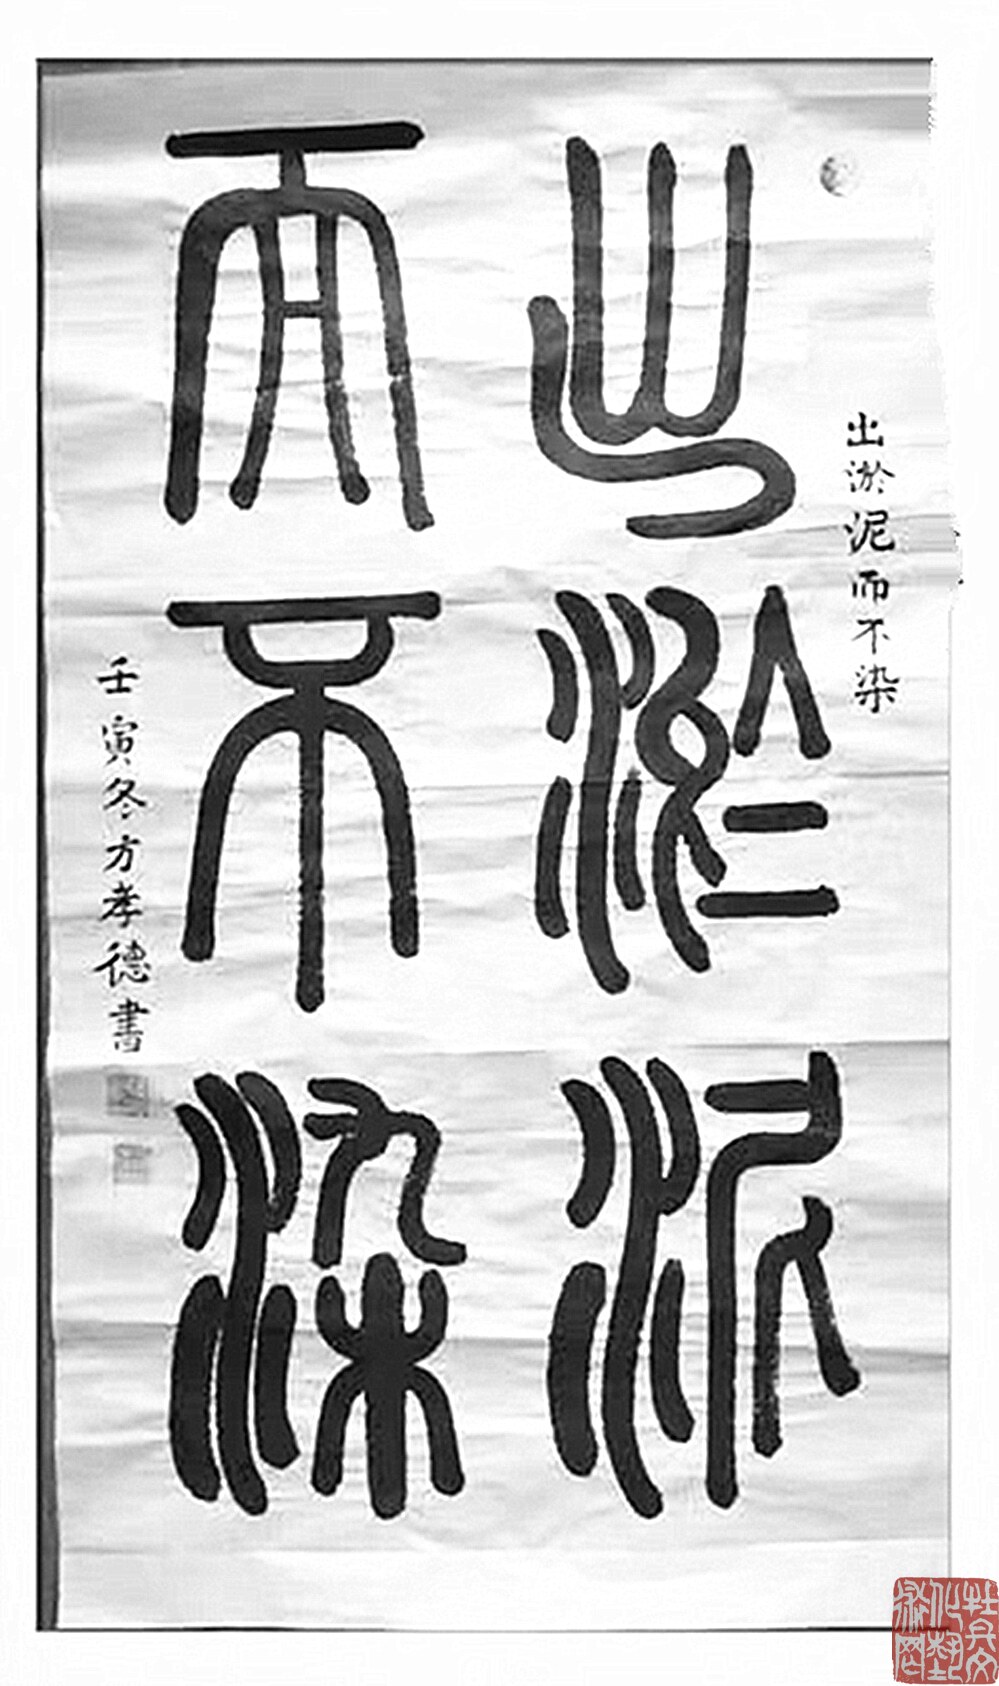 出淤泥而不染
出淤泥
而不染
壬寅冬方孝德書